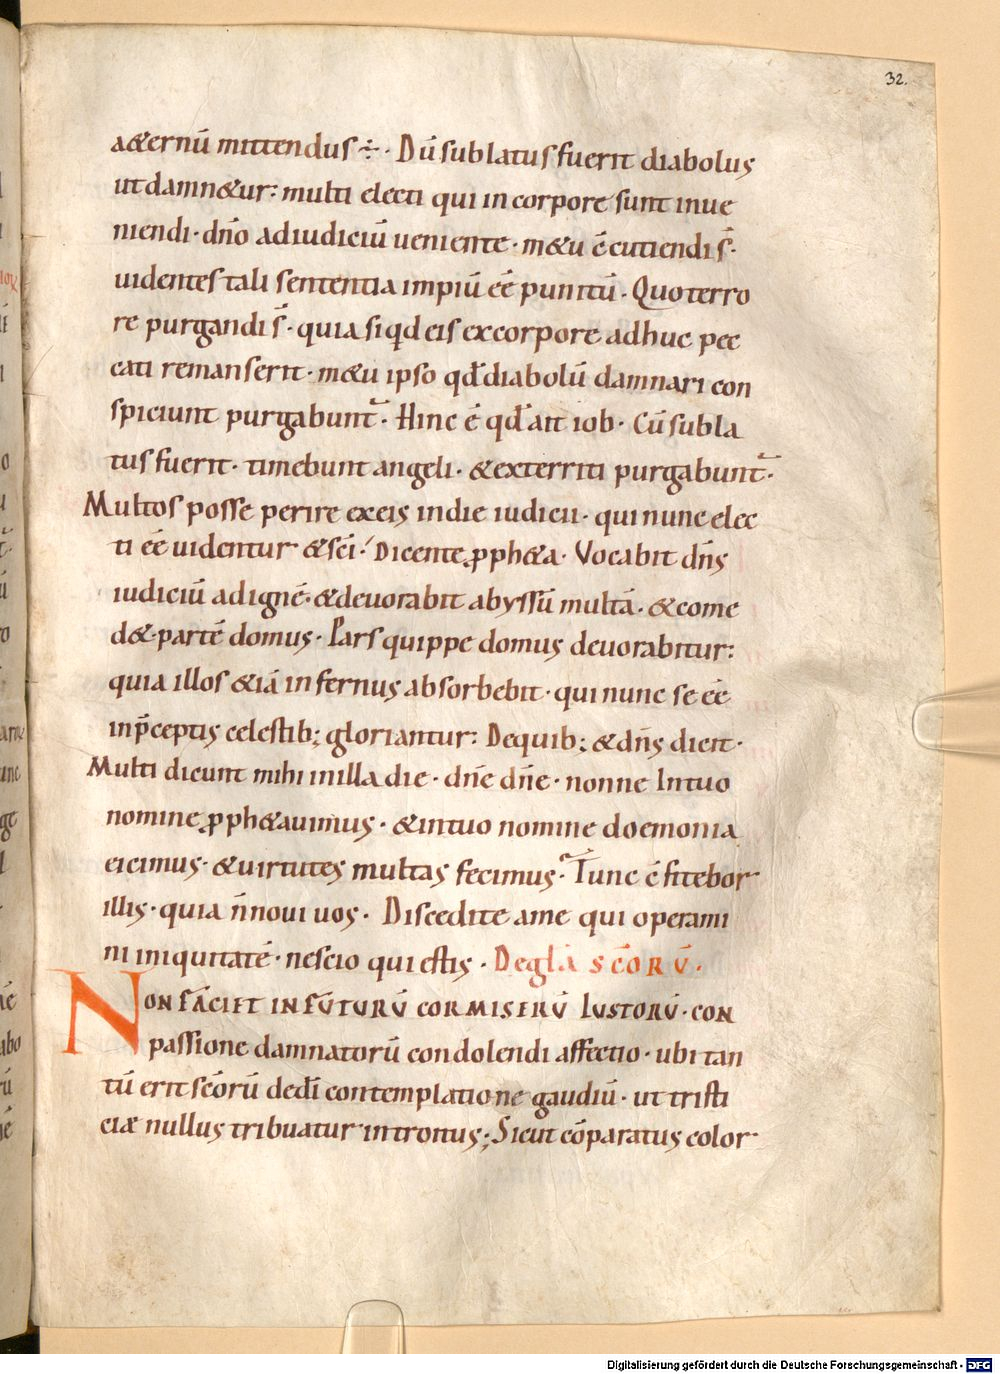 32.
a&ernū mittendus ÷ · Dū sublatus fuerit diabolus
ut damn&ur: multi electi qui in corpore sunt inue
niendi · dn̄o ad iudiciū ueniente · m&u c̄cutiendi s̄ ·
uidentes tali sententia impiū ēē punitū · Quo terro
re purgandi s̄ · quia si qd eis ex corpore adhuc pec
cati remanserit · m&u ipso qd̄ diabolū damnari con
spiciunt purgabunt᷑ · Hinc ē qd̄ ait iob · Cū subla
tus fuerit · timebunt angeli · & exterriti purgabunt᷑ ·
Multos posse perire ex eis in die iudicii · qui nunc elec
ti ēē uidentur & sc̄i · Dicente ꝓph&a · Vocabit dn̄s
iudiciū ad ignē · & deuorabit abyssū multā · & come
d& · partē domus · Pars quippe domus deuorabitur:
quia illos &iā infernus absorbebit · qui nunc se ēē
in p̄ceptis celestib; gloriantur: De quib; & dn̄s dicit ·
Multi dicunt mihi in illa die · dn̄e dn̄e · nonne In tuo
nomine ꝓph&auimus · & in tuo nomine doemonia
eicimus · & uirtutes multas fecimus · Tunc c̄fitebor
illis · quia n̄ noui uos · Discedite a me qui operami
ni iniquitatē · nescio qui estis · De gl̄a SC̄ORŪ ·
NON FACIET IN FUTURŪ COR MISERŪ IUSTORŪ · CON
passione damnatorū condolendi affectio · ubi tan
tū erit sc̄orū de dī contemplatione gaudiū · ut tristi
ciæ nullus tribuatur introitus; Sicut cōparatus color
Digitalisierung gefördert durch die Deutsche Forschungsgemeinschaft - DFG